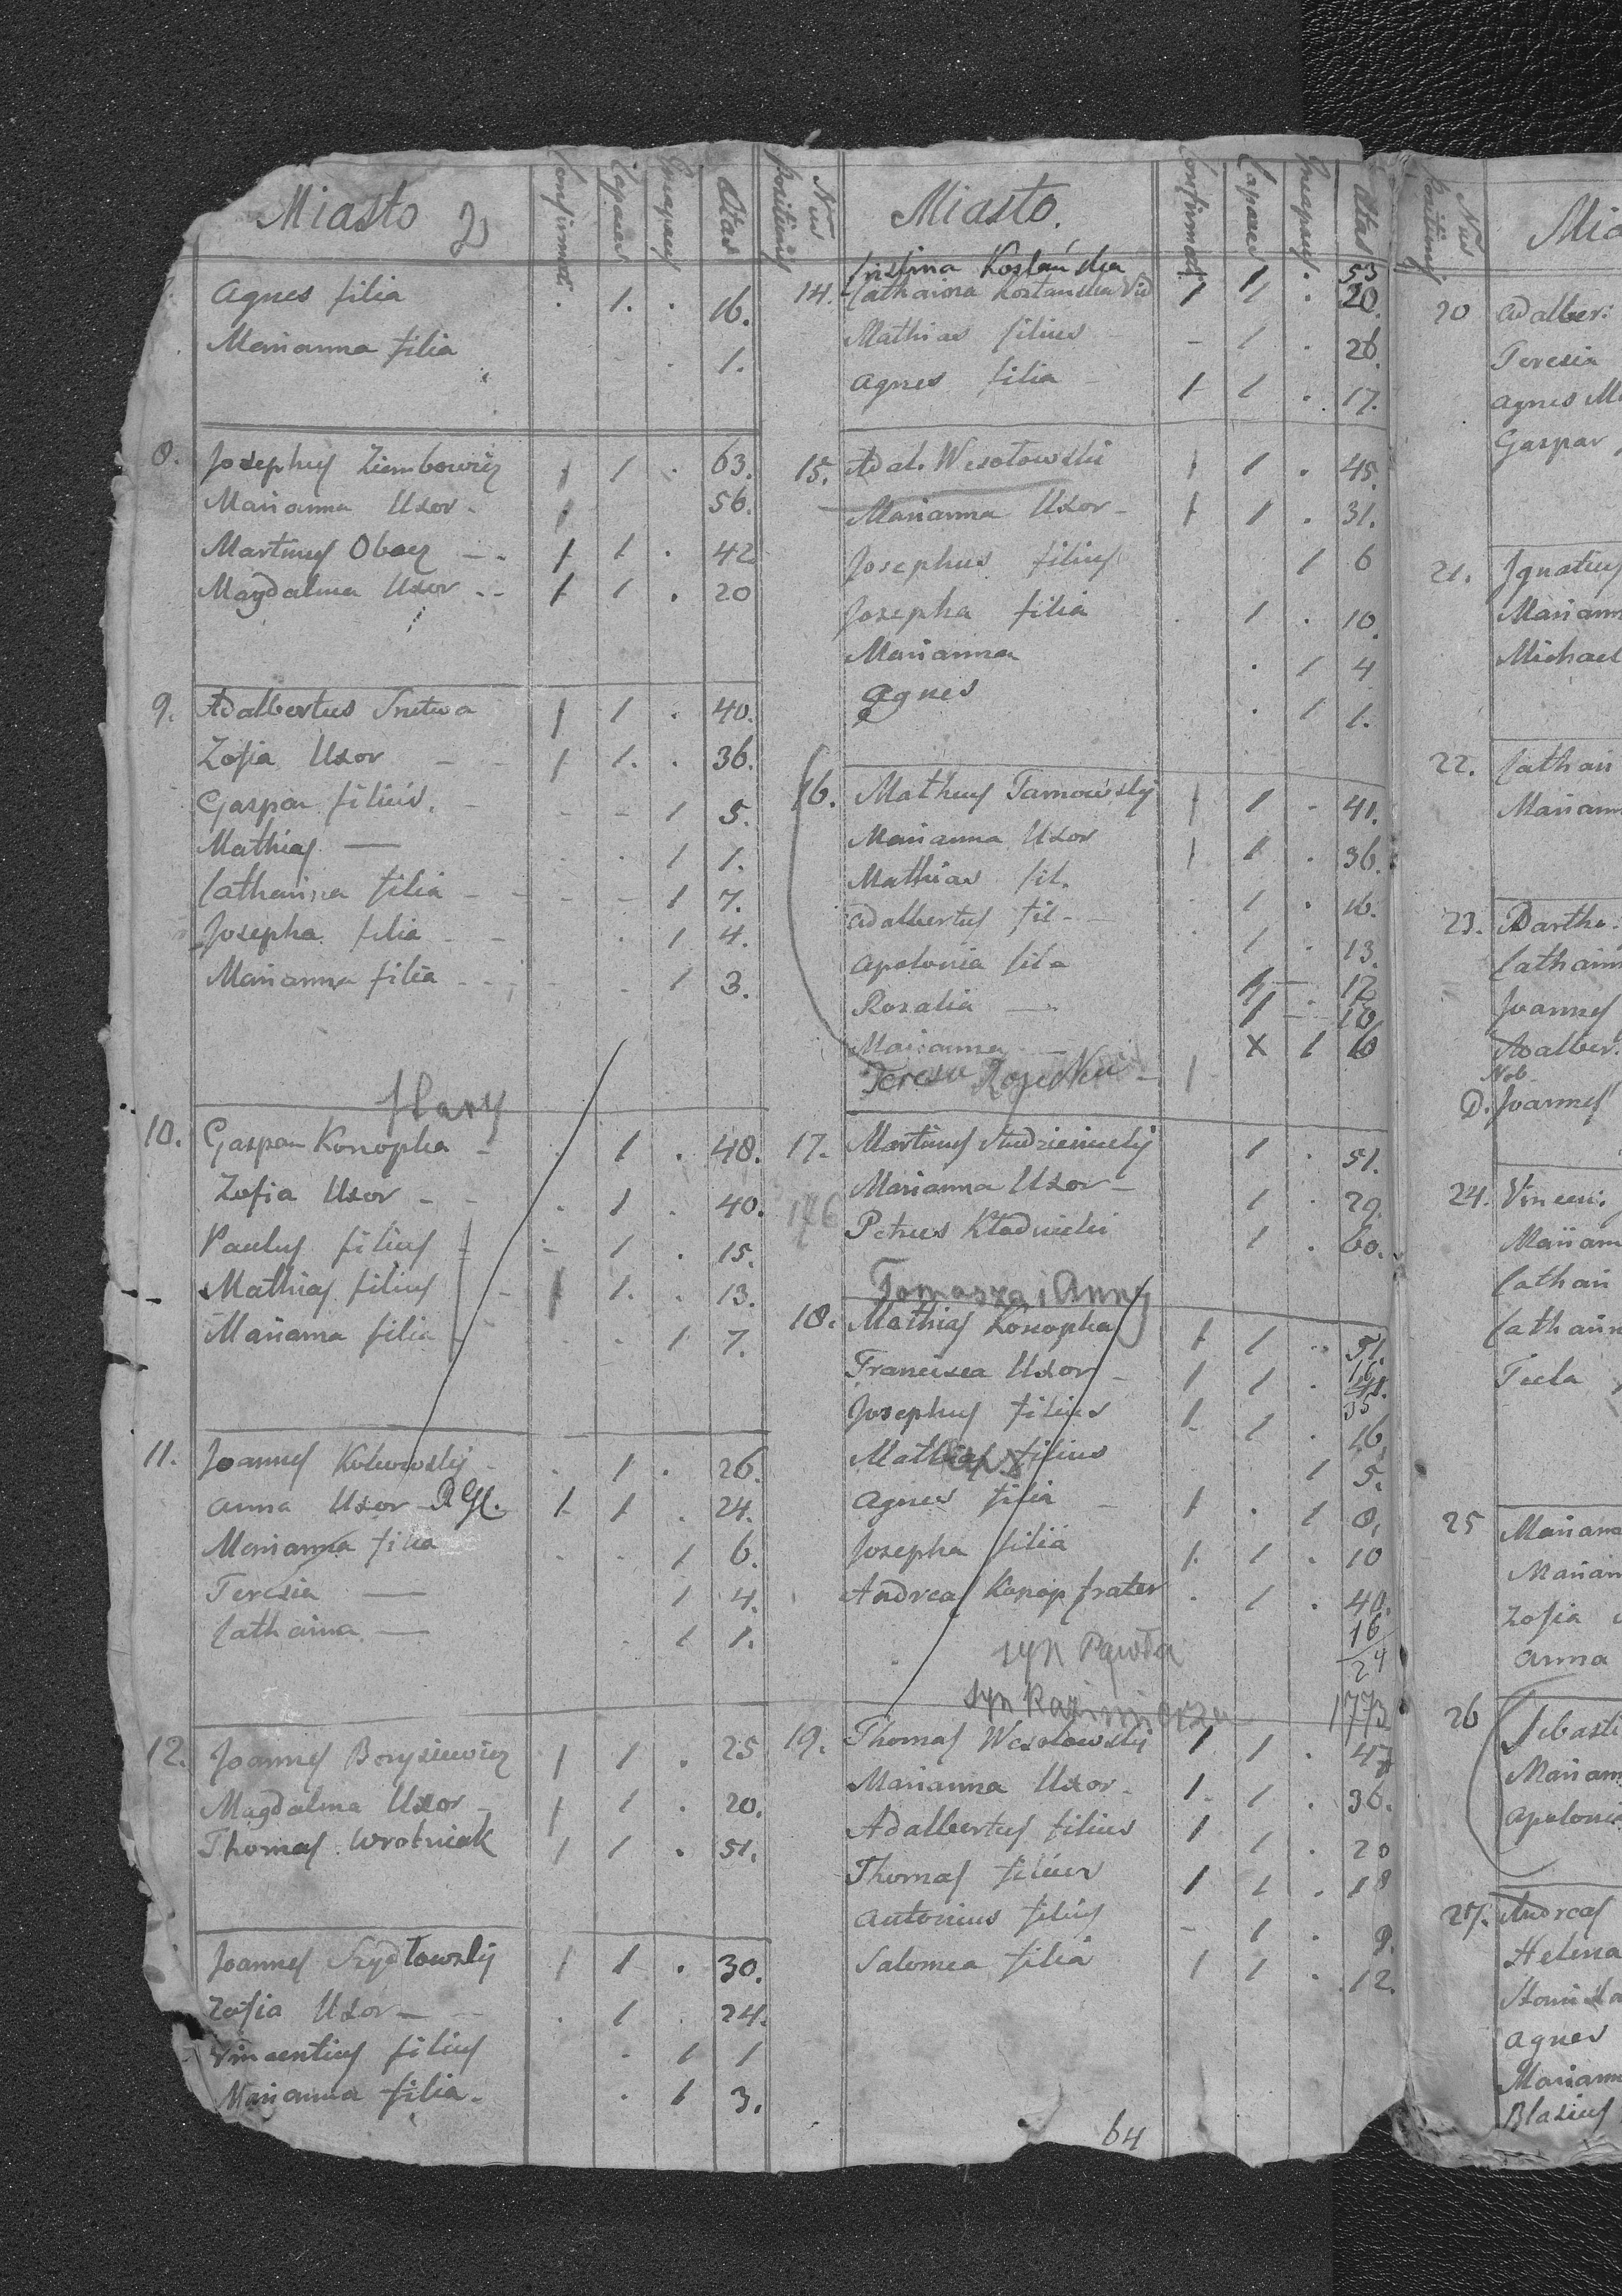 Miasto 2 Confirmati Capaces Incapaces Aetas
Agnes filia . 1. . 16.
Marianna filia . 1.
8. Josephus Ziembowicz 1 1 . 63.
Marianna Uxor - 1 56.
Martinus Obacz -- 1 1 . 42
Magdalena Uxor -- 1 1 . 20
9. Adalbertus Snitwa 1 1 . 40.
Zofia Uxor - - 1 1. . 36.
Gaspar filius. - - - 1 5.
Mathias — . . 1 1.
Catharina filia - - - - 1 7.
Josepha filia - - . 1 4.
Marianna filia - - - . 1 3.
10. Gaspar Konopka - . 1 . 48.
Zofia Uxor - - . 1 . 40.
Paulus filius - 1 . 15.
Mathias filius - 1. . 13.
Marianna filia . . 1 7.
11. Joannes - . 1 . 26.
Anna Uxor 1 1 . 24.
Marianna filia . . 1 6.
Teresia — 1 4.
Catharina — . 1 1.
12. Joannes Borysiewicz 1 1 . 25
Magdalena Uxor - 1 1 . 20.
Thomas Wrotniak 1 1 . 51.
Joannes Szydłowski 1 1 . 30.
Zofia Uxor - -- . 1 . 24.
Vincentius filius . 1 1
Marianna filia - . 1 3.
Nrus Positionis Miasto. Confirmati Capaces Incapaces Aetas
Cristina Kostańska 1 . 53
14. Catharina Kostańska Vid 1 1 . 20.
Mathias filius - - 1 . 26.
Agnes filia - 1 1 . 17.
15. Adal. Wesołowski 1 1 . 45.
Marianna Uxor - 1 1 . 31.
Josephus filius 1 6
Josepha filia . 1 . 10.
Marianna . 1 4
Agnes . 1 1.
16. Matheus Tarnowski 1 1 - 41.
Marianna Uxor 1 1 . 36.
Mathias fil. 1 . 16.
Adalbertus fil - - 1 . 13.
Apolonia filia 12
Rosalia — 10
Marianna — X 1
Teresa
17. Martinus 1 . 51.
Marianna Uxor - 1 . 29.
176
Petrus Kładnicki 1 . 60.
Tomasza i Anny
18. Mathias Konopka 1 1 .. 51.
Francisca Uxor - 1 1 .
35
Josephus filius 1 1 . 16
Mathias filius 1 5.
Agnes filia - 1 . 1 8.
Josepha filia 1. 1 . 10
Andreas Konop frater . 1 . 40.
16
syn Pawła 24
syn Kazimierza 1773
19. Thomas Wesołowski 1 1 . 47
Marianna Uxor - 1. 1 . 36.
Adalbertus filius 1 1 . 20
Thomas filius 1 1 . 18
Antonius filius - 1 . 9.
Salomea filia 1 1 . 12.
64
Nrus Positionis
20 Adalber.
Teresia
Agnes
Gaspar
21. Ignatius
Michael
22.
23. Barthe.
Joannes
Adalber.
Nob
D. Joannes
24.
Tecla
25
Zofia
Anna
26 Sebasti
27. Andreas
Helena
Agnes
Blasius